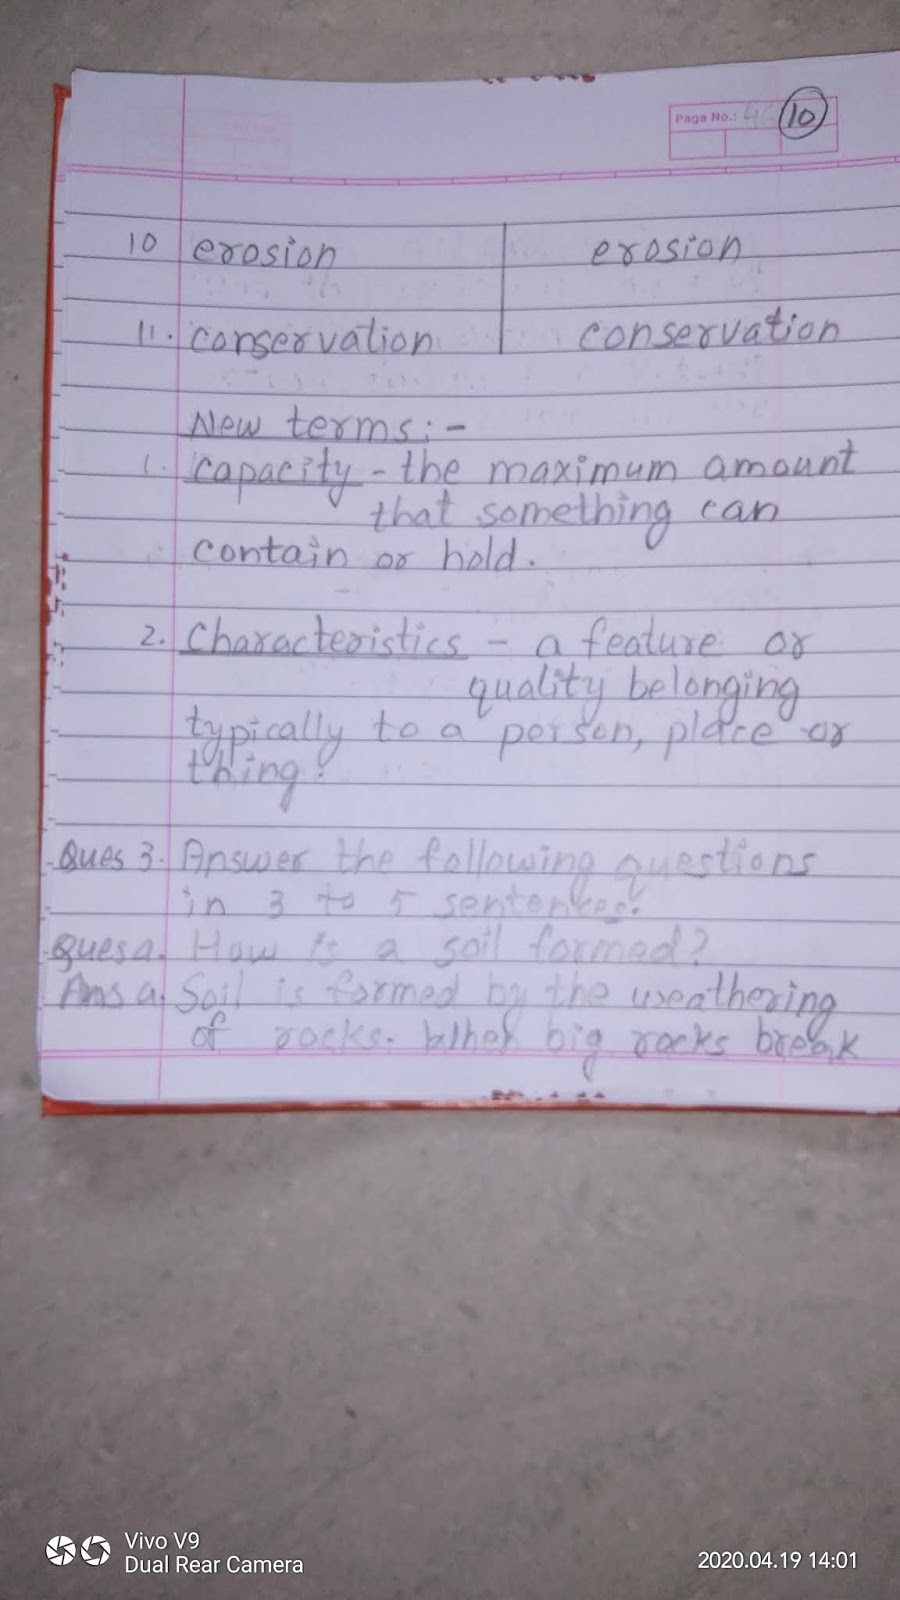 Page No.: 10
10 erosion erosion
11. conservation conservation
New terms:-
1. capacity - the maximum amount
that something can
contain or hold.
2. Characteristics - a feature or
quality belonging
typically to a person, place or
thing.
Ques 3. Answer the following questions
in 3 to 5 sentences.
Ques a. How is a soil formed?
Ans a. Soil is formed by the weathering
of rocks. When big rocks break
Vivo V9
Dual Rear Camera
2020.04.19 14:01